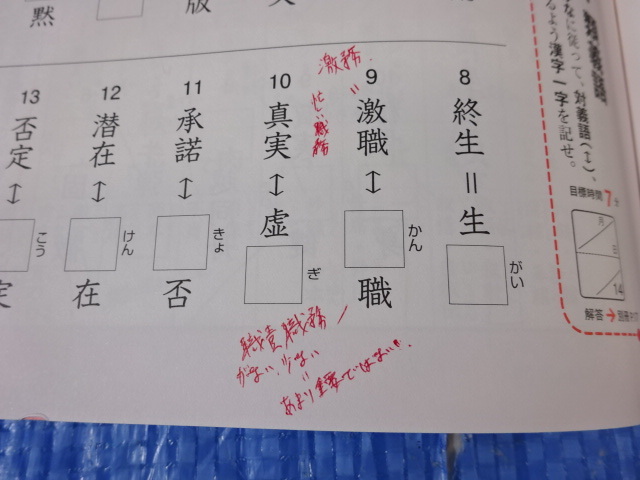 なに従って、対義語(↔)、
るよう漢字一字を記せ。
目標時間 7分
月
日
14
解答→別冊
8 終生=生□ がい
9 激職↔□職 かん
激務.
忙しい職務
職責職務
がない、少ない
あまり重要ではない
10 真実↔虚□ ぎ
11 承諾↔□否 きょ
12 潜在↔□在 けん
13 否定↔□ こう
版
黙